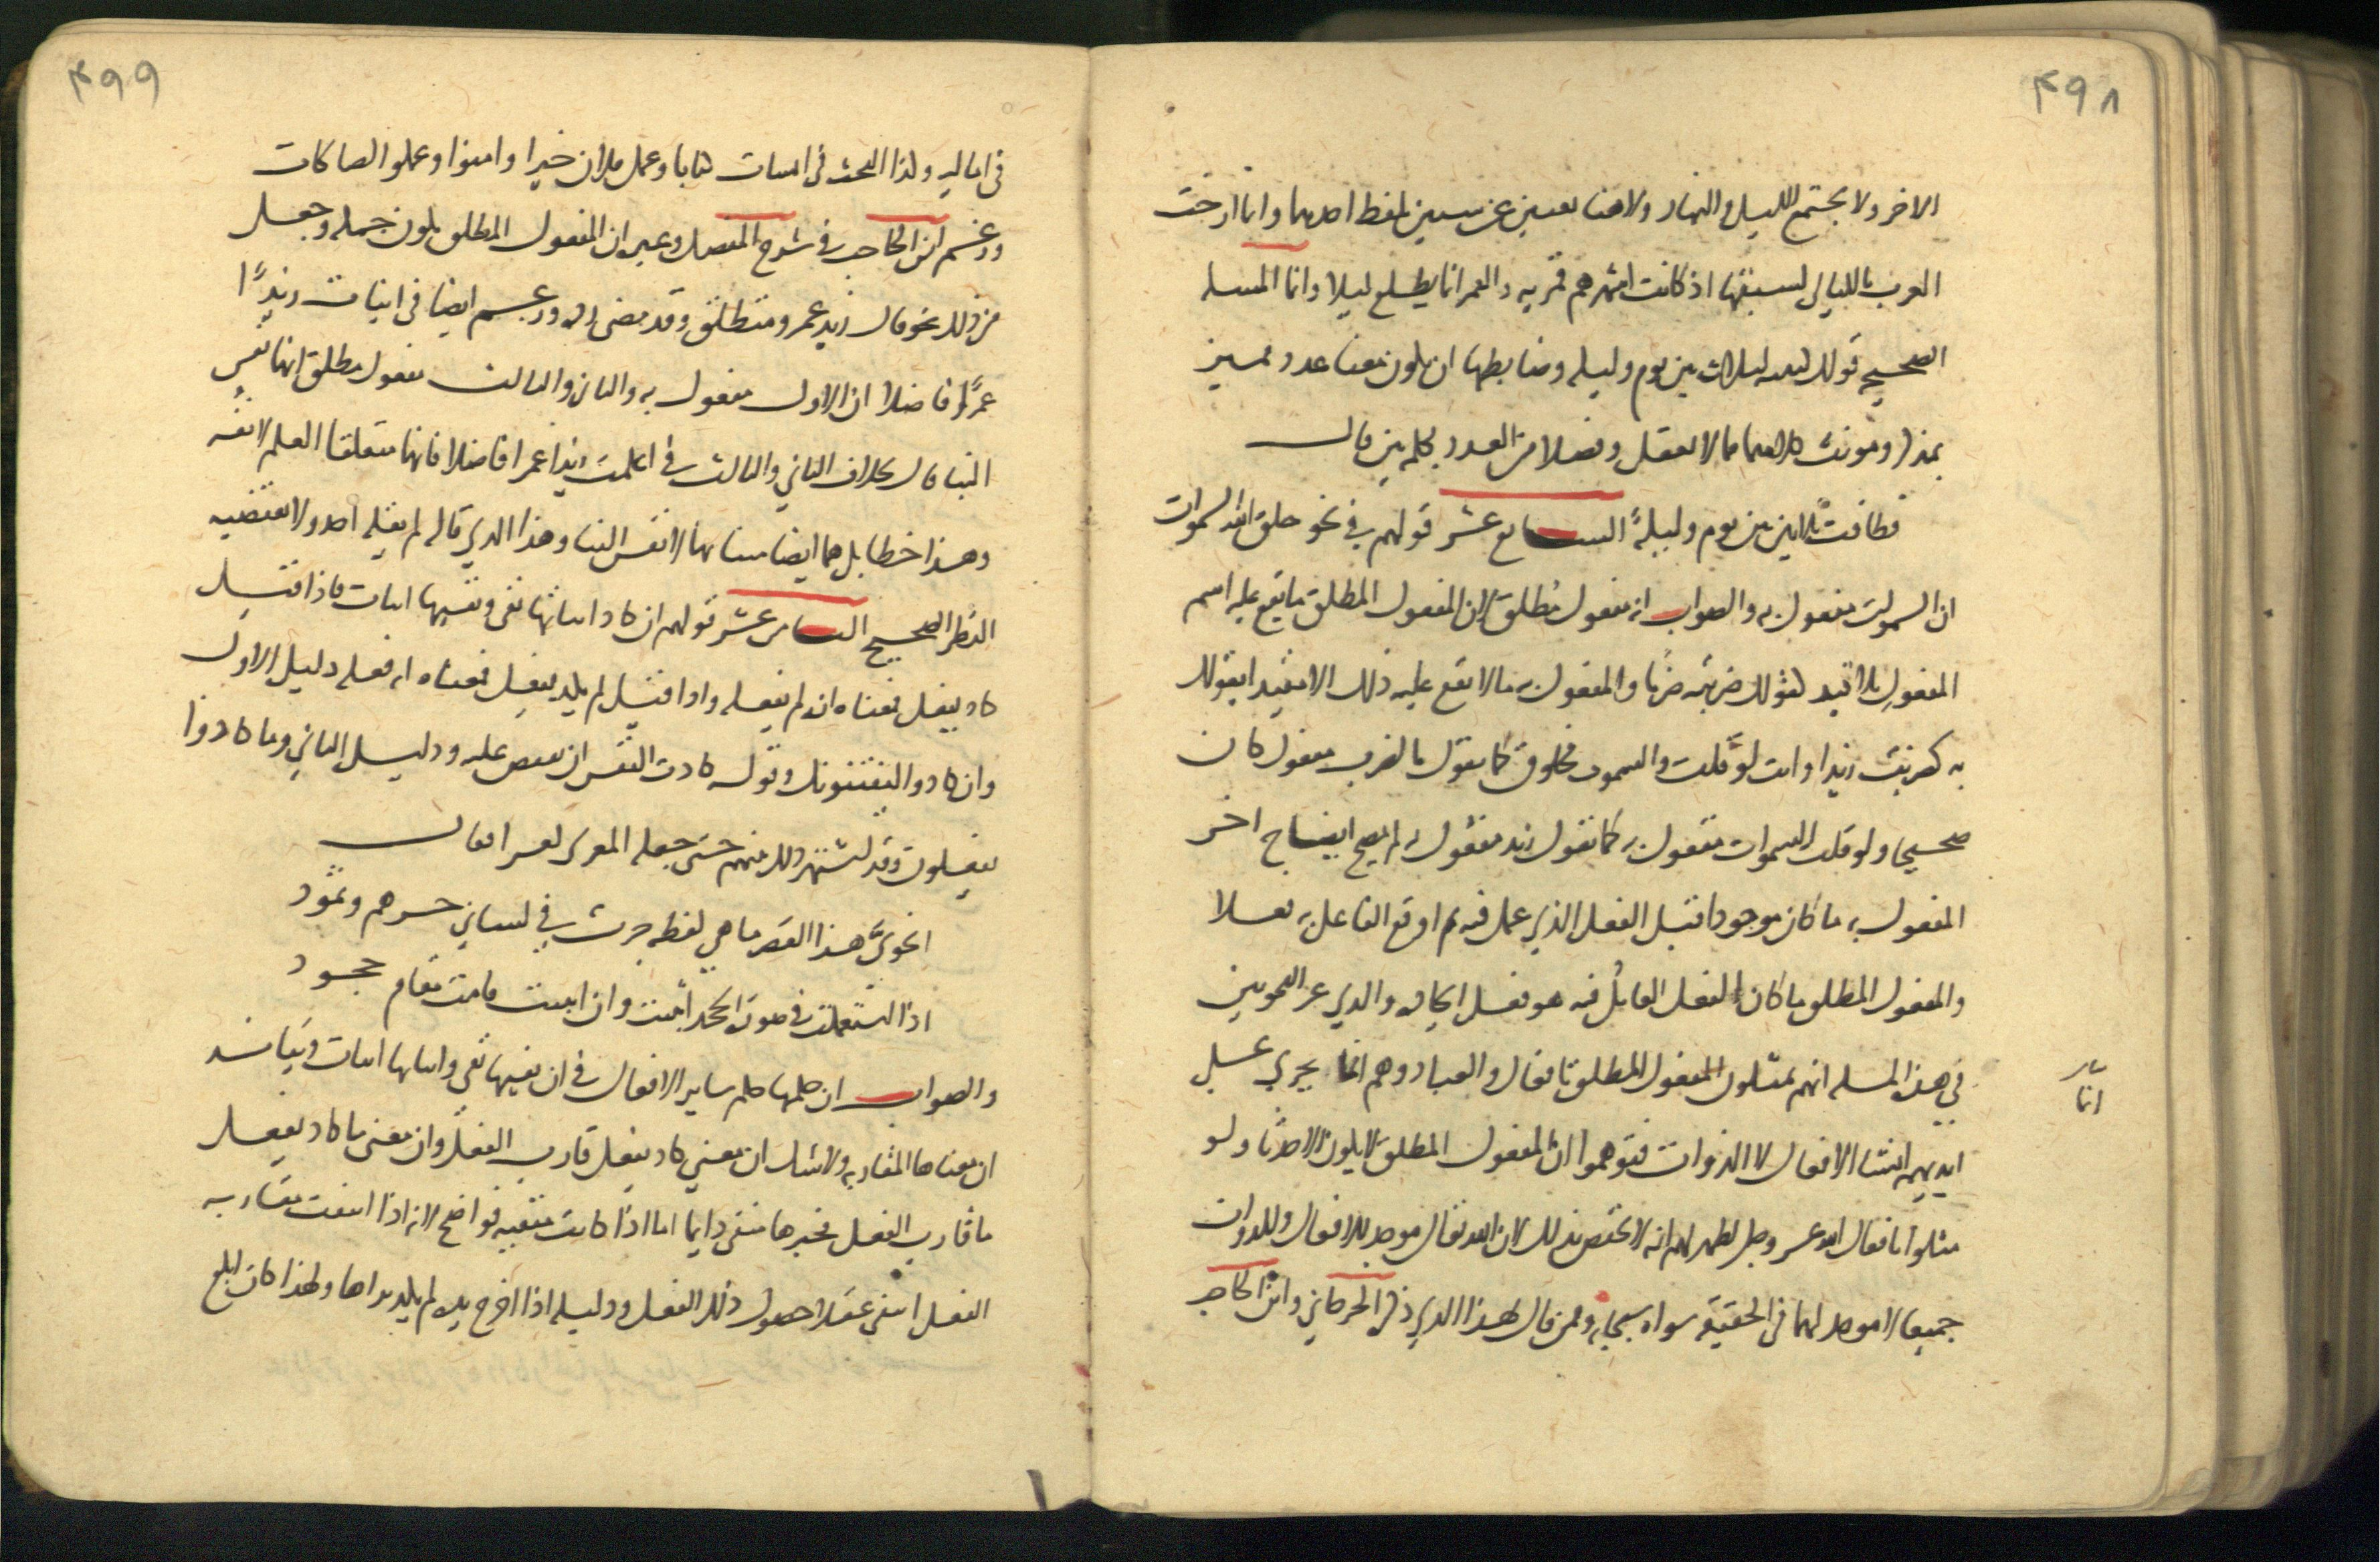 ٤٩٨
الاخر ولا يجتمع الليل والنهار ولا هنا تعبير عن شيئين بلفظ احدهما وانما ارخت
العرب بالليالي لسبقها اذ كانت اشهرهم قمرية والقمر انما يطلع ليلا وانما المسئلة
الصحيحة قولك كتبته لثلاث بين يوم وليلة وضابطها ان يكون معنا عدد مميز
بمذكر ومونث كلاهما مما لا يعقل وفصلا من العدد بكلمة بين قال
فطافت ثلاثا بين يوم وليلةً السابع عشر قولهم في نحو خلق الله السموات
ان السموات مفعول به والصواب انه مفعول مُطلق لان المفعول المطلق ما يقع عليه اسم
المفعول بلا قيد كقولك ضربت ضربا والمفعول به ما لا يقع عليه ذلك الا مقيدا بقولك
به كضربت زيدا وانت لو قلت السموات مخلوق كما تقول الضرب مفعول كان
صحيحا ولو قلت السموات مفعول به كما تقول زيد مفعول به لم يصح ايضاح اخر
المفعول به ما كان موجودا قبل الفعل الذي عمل فيه ثم اوقع الفاعل به فعلا
والمفعول المطلق ما كان الفعل العامل فيه هو فعل ايجاده والذي غر النحويين
في هذه المسئلة انهم يمثلون المفعول المطلق بافعال العباد وهم انما يجري على
انما
ايديهم انشا الافعال لا الذوات فتوهموا ان المفعول المطلق لا يكون الا حدثا ولو
مثلوا بافعال الله عز وجل لظهر لهم انه لا يختص بذلك لان الله تعالى موجد للافعال وللذوات
جميعا لا موجد لهما في الحقيقة سواه سبحانه وممن قال بهذا الذي ذكرته الجرجاني وابن الحاجب
٤٩٩
في اماليه وكذا البحث في انشات كتابا وعمل فلان خيرا وامنوا وعملوا الصالحات
وزعم ابن الحاجب في شرح المفصل وغيره ان المفعول المطلق يكون جملة وجعل
من ذلك نحو قال زيد عمرو منطلق وقد مضى رده وزعم ايضا في انبات زيدًا
عمرًا فاضلا ان الاول مفعول به والثاني والثالث مفعول مطلق لانهما نفس
النبا قال بخلاف الثاني والثالث في اعلمت زيدا عمرا فاضلا فانهما متعلقا العلم لا نفسه
وهذا خطا بل هما ايضا منبا بهما لا نفس النبا وهذا الذي قاله لم يقله احد ولا يقتضيه
النظر الصحيح الثامن عشر قولهم ان كاد اثباتها نفي ونفيها اثبات فاذا قيل
كاد يفعل فمعناه انه لم يفعل واذا قيل لم يكد يفعل فمعناه انه فعله دليل الاول
وان كادوا ليفتنونك وقوله كادت النفس ان تفيض عليه ودليل الثاني وما كادوا
يفعلون وقد اشتهر ذلك بينهم حتى جعله المعري لغزا فقال
انحويَّ هذا العصر ما هي لفظة جرت في لساني جرهم وثمود
اذا استعملت في صورة الجحد اثبتت وان اثبتت قامت مقام جحود
والصواب ان حكمها حكم ساير الافعال في ان نفيها نفي واثباتها اثبات وبيانه
ان معناها المقاربة ولا شك ان معنى كاد يفعل قارب الفعل وان معنى ما كاد يفعل
ما قارب الفعل فخبرها منفي دايما اما اذا كانت منفية فواضح لانه اذا انتفت مقاربة
الفعل انتفى عقلا حصول ذلك الفعل ودليله اذا اخرج يده لم يكد يراها ولهذا كان ابلغ